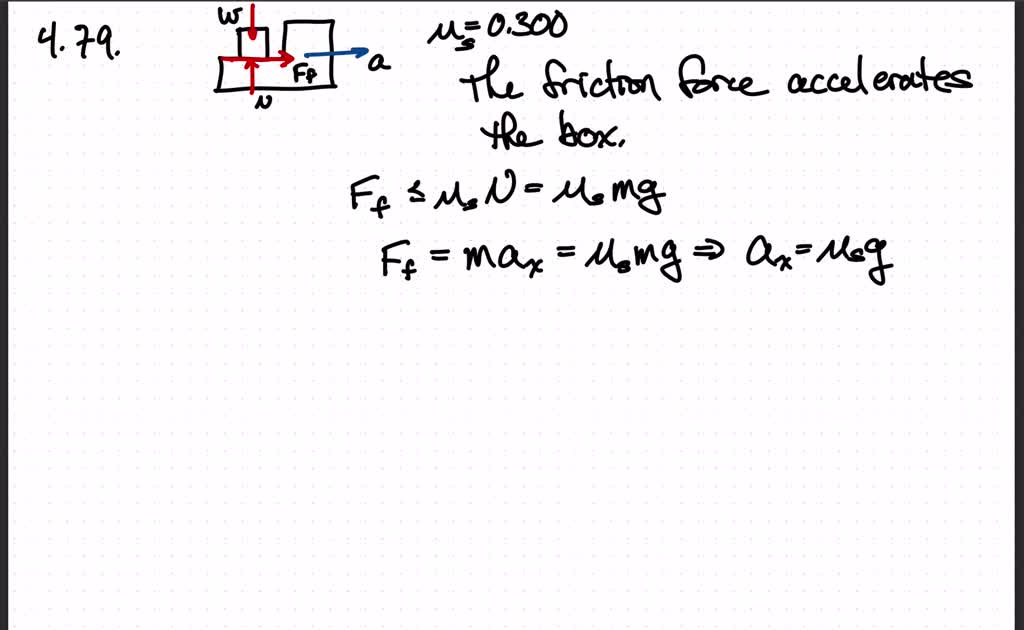 4.79.
W
Ff
a
N
μs=0.300
The friction force accelerates
the box.
Ff ≤ μs N = μs mg
Ff = max = μs mg ⇒ ax = μs g